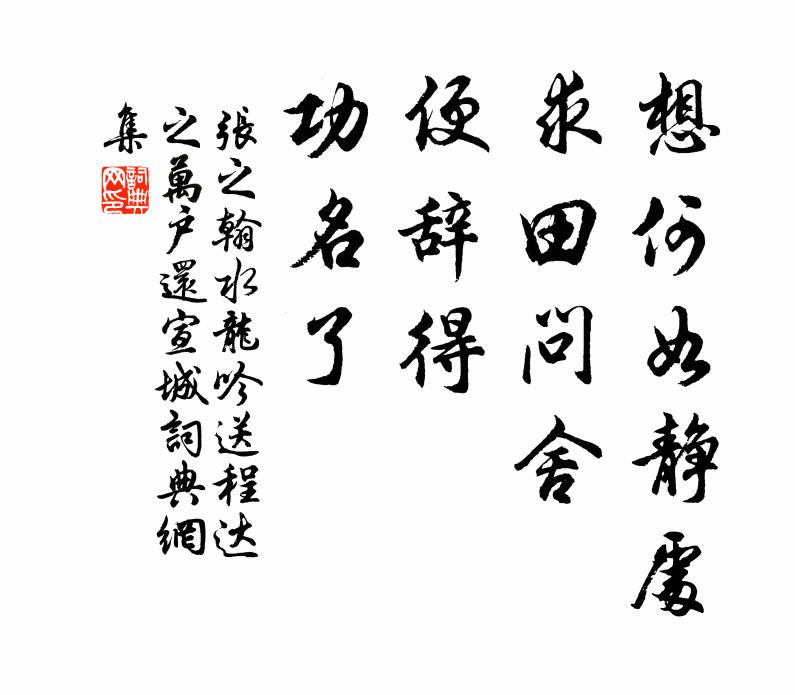 想何如静處
求田问舍
便辞得
功名了
張之翰水龍吟送程达
之萬户還宣城詞典網
集
詞典
网印